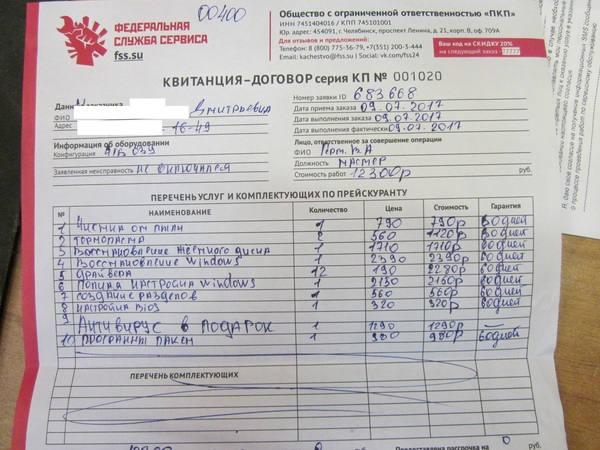 00400
ФЕДЕРАЛЬНАЯ
СЛУЖБА СЕРВИСА
fss.su
Общество с ограниченной ответственностью «ПКП»
ИНН 7451404016 / КПП 745101001
Юр. адрес: 454091, г. Челябинск, проспект Ленина, д. 21, корп. В, оф. 709А
Для отзывов и предложений:
Телефон: 8 (800) 775-36-79, +7(351) 200-5-444
Email: kachestvo@fss.su | Social: vk.com/fss24
Ваш код на СКИДКУ 20%
на следующий заказ - 77777
КВИТАНЦИЯ-ДОГОВОР серия КП № 001020
Номер заявки ID 683668
Данные заказчика
ФИО Дмитриевич
Адрес 16-49
Дата приема заказа 09.07.2017
Дата выполнения заказа 09.07.2017
Дата выполнения фактически 09.07.2017
Информация об оборудовании
Конфигурация
Заявленная неисправность не включился
Лицо, ответственное за совершение операции
ФИО В.А
Должность мастер
Стоимость работ 12300р руб.
ПЕРЕЧЕНЬ УСЛУГ И КОМПЛЕКТУЮЩИХ ПО ПРЕЙСКУРАНТУ
№ НАИМЕНОВАНИЕ Количество Цена Стоимость Гарантия
1 Чистка от пыли 1 790 790р 60 дней
2 Термопаста 2 560 1120р 60 дней
3 Восстановление жесткого диска 1 1710 1710р 60 дней
4 Восстановление Windows 1 2390 2390р 60 дней
5 Драйвера 12 190 2280р 60 дней
6 Полная настройка Windows 1 2150 2150р 60 дней
7 Создание разделов 1 560 560р 60 дней
8 Настройка BIOS 1 320 320р 60 дней
9 Антивирус в подарок 1 1290 1290р –
10 Программы пакет 1 980 980р 60 дней
ПЕРЕЧЕНЬ КОМПЛЕКТУЮЩИХ
Предоставлена рассрочка на 0